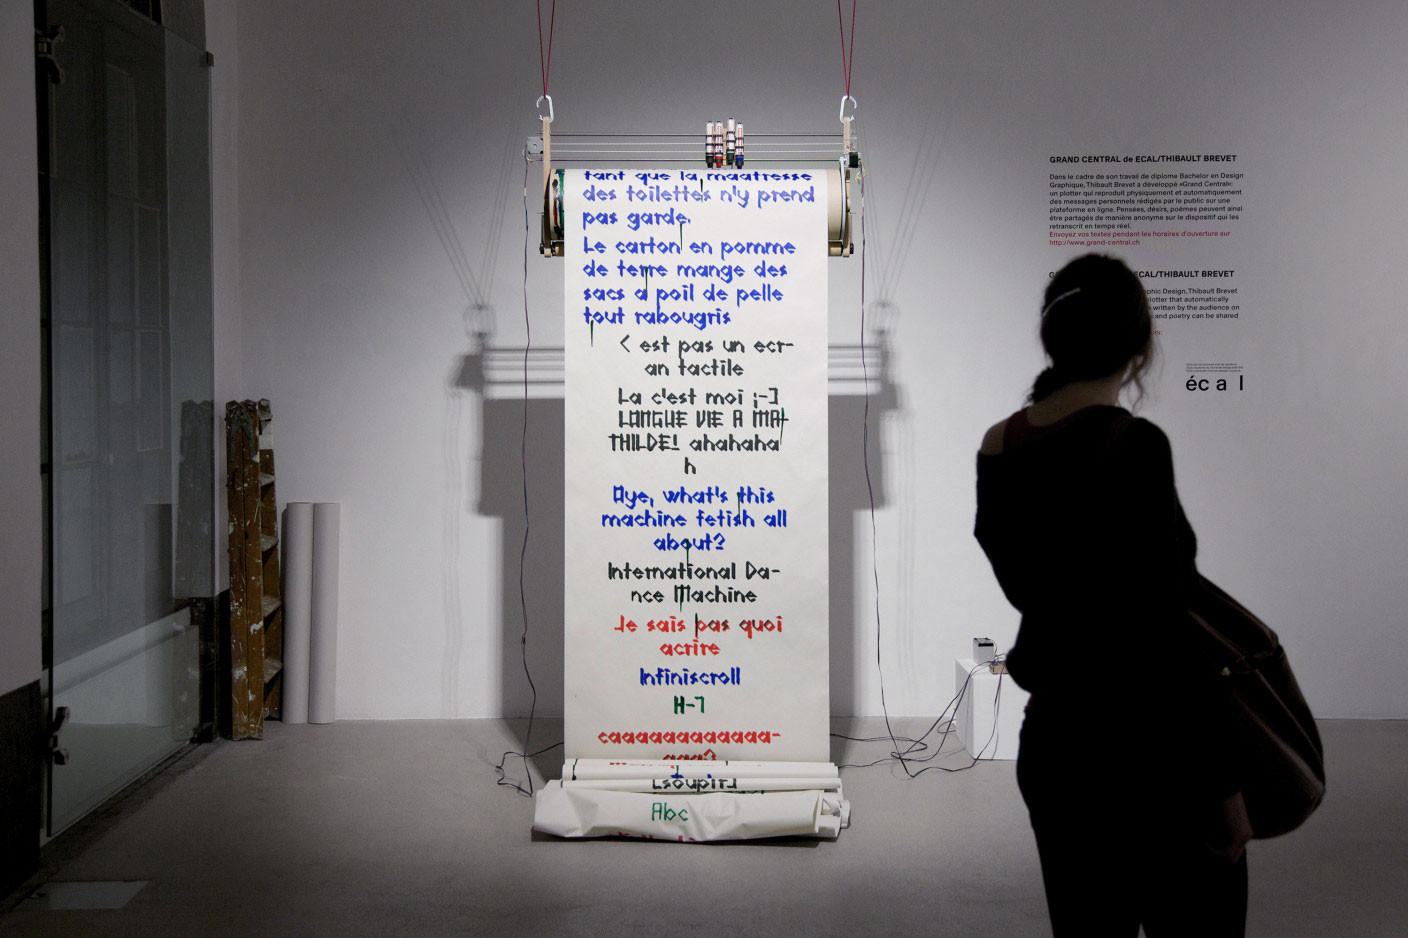 tant que la maatresse
des toilettes n'y prend
pas garde.
Le carton en pomme
de terre mange des
sacs a poil de pelle
tout rabougris
C est pas un ecr-
an tactile
La c'est moi ;-]
LONGUE VIE A MA-
THILDE! ahahaha
h
Aye, what's this
machine fetish all
about?
International Da-
nce Machine
Je sais pas quoi
acrire
Infiniscroll
H-7
caaaaaaaaaaaaa-
aaa?
[soupir]
Abc
GRAND CENTRAL de ECAL/THIBAULT BREVET
Dans le cadre de son travail de diplome Bachelor en Design
Graphique, Thibault Brevet a développé «Grand Central»:
un plotter qui reproduit physiquement et automatiquement
des messages personnels rédigés par le public sur une
plateforme en ligne. Pensées, désirs, poèmes peuvent ainsi
être partagés de manière anonyme sur le dispositif qui les
retranscrit en temps réel.
Envoyez vos textes pendant les horaires d'ouverture sur
http://www.grand-central.ch
ECAL/THIBAULT BREVET
Graphic Design, Thibault Brevet
plotter that automatically
written by the audience on
and poetry can be shared
écal